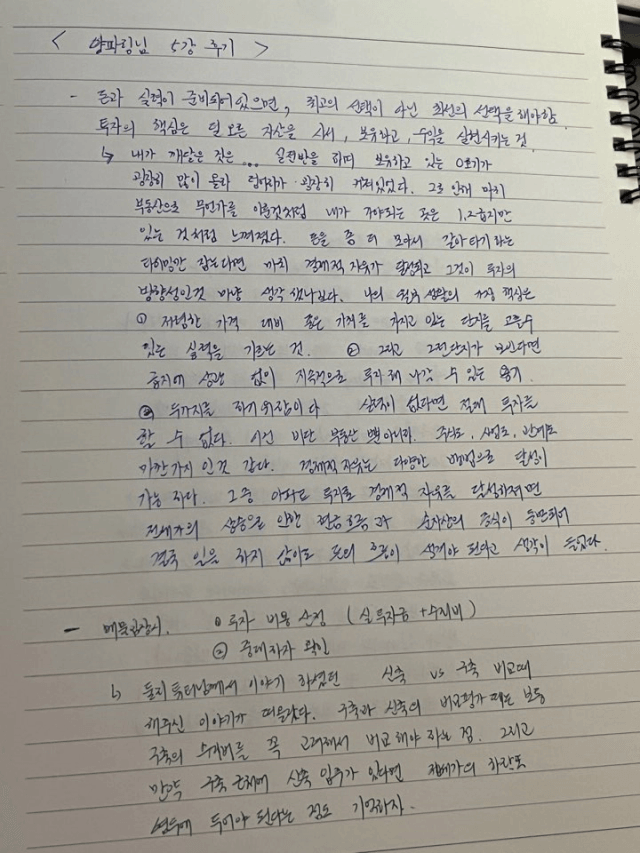 < 양파링님 5강 후기 >
- 돈과 실력이 준비되어있으면, 최고의 선택이 아닌 최선의 선택을 해야함.
투자의 핵심은 덜 오른 자산을 사서, 보유하고, 수익을 실현시키는 것.
↳ 내가 깨달은 것은... 실전반을 하며 보유하고 있는 0호기가
굉장히 많이 올라 덩어리가 굉장히 커져있었다. 그로 인해 마치
부동산으로 무언가를 이룬것처럼 내가 가야되는 곳은 1,2급지만
있는 것처럼 느껴졌다. 돈을 좀 더 모아서 갈아타기 라는
타이밍만 잡는다면 마치 경제적 자유가 달성되고 그것이 투자의
방향성인것 마냥 생각 했나보다. 나의 투자 생활의 가장 핵심은
① 저렴한 가격 대비 좋은 가치를 가지고 있는 단지를 고를수
있는 실력을 기르는 것. ② 그리고 그런단지가 보인다면
급지에 상관 없이 지속적으로 투자해 나갈 수 있는 용기.
두가지를 하기위함이다 실력이 없다면 절대 투자를
할 수 없다. 이건 비단 부동산 뿐 아니라. 주식도, 사업도, 관계도
마찬가지 인 것 같다. 경제적 자유는 다양한 방법으로 달성이
가능 하다. 그 중 아파트 투자로 경제적 자유를 달성하려면
전세가의 상승으로 인한 현금흐름과 순자산의 증식이 동반되어
결국 일을 하지 않아도 돈의 흐름이 생겨야 된다고 생각이 들었다.
- 매물임장시. ① 투자 비용 산정 (실투자금 + 수리비)
② 중대하자 확인
↳ 돌리 튜터님께서 이야기 하셨던 신축 vs 구축 비교때
해주신 이야기가 떠올랐다. 구축과 신축의 비교평가 때는 보통
구축의 수리비를 꼭 고려해서 비교해야 하는 점. 그리고
만약 구축 근처에 신축 입주가 있다면 전세가의 하락도
염두에 두어야 된다는 점도 기억하자.